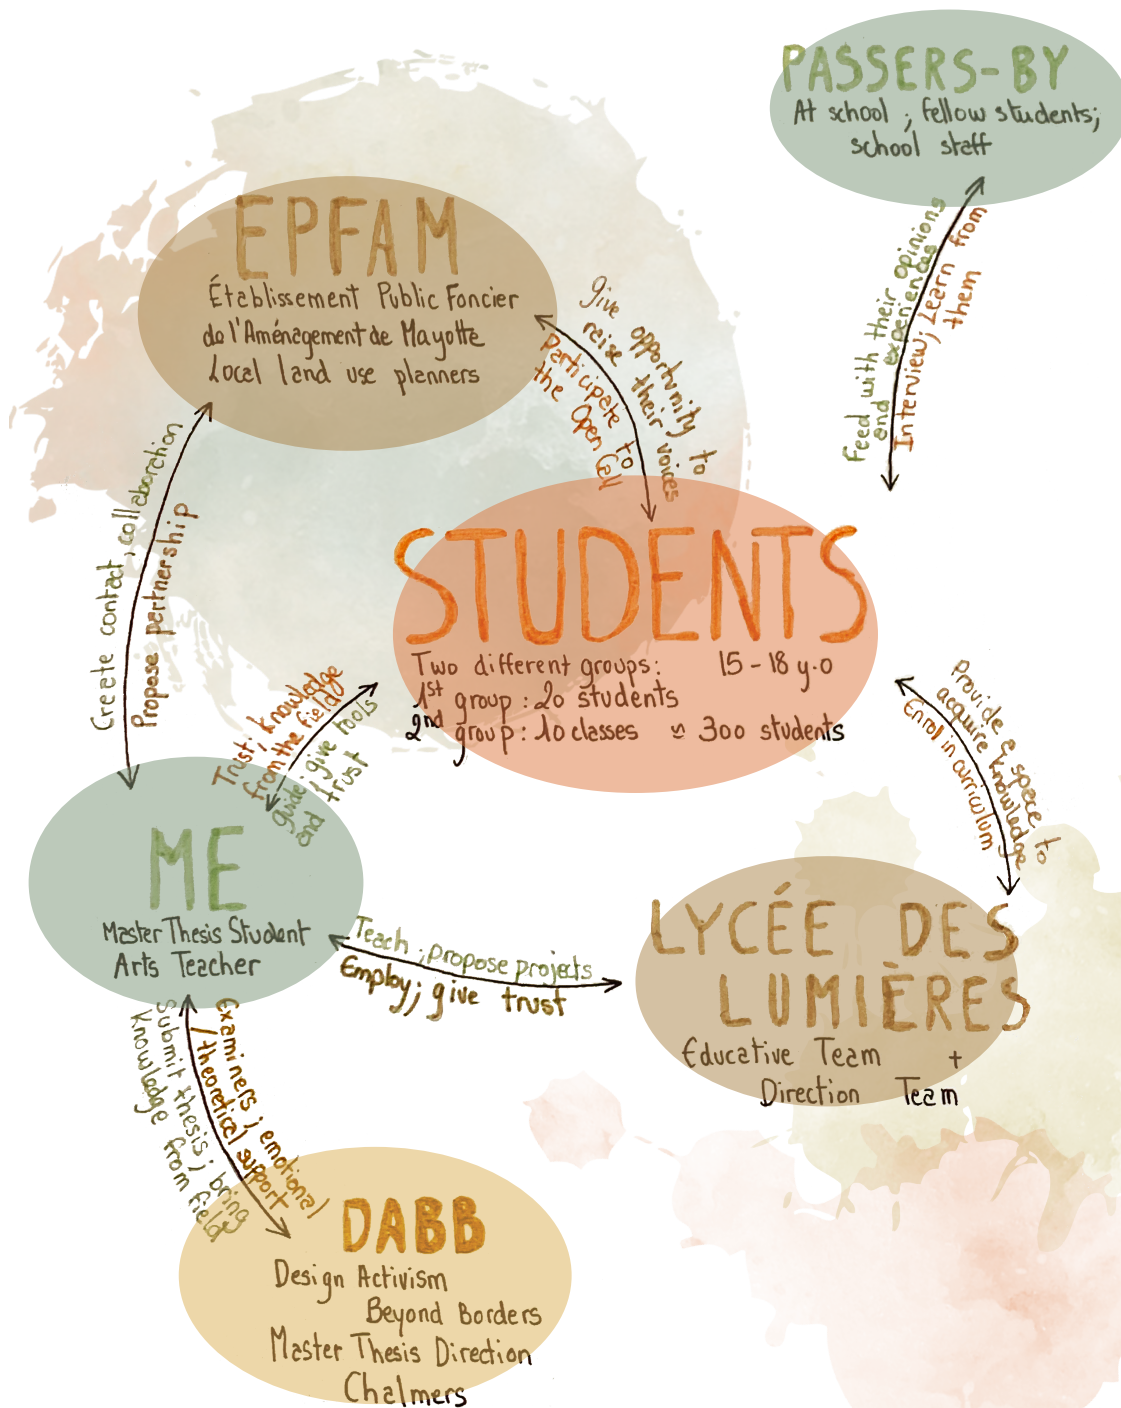 PASSERS-BY
At school ; fellow students;
school staff
EPFAM
Établissement Public Foncier
de l'Aménagement de Mayotte
Local land use planners
give opportunity to
raise their voices
Participate to
the Open Call
Feed with their opinions
and experiences
Interview; Learn from
them
Create contact, collaboraction
Propose partnership
STUDENTS
Two different groups: 15 - 18 y.o
1st group : 20 students
2nd group : 10 classes ≃ 300 students
Trust; knowledge
from the field
guide; give tools
and trust
Provide a space to
acquire knowledge
Enroll in curriculum
ME
Master Thesis Student
Arts Teacher
Teach ; propose projects
Employ; give trust
LYCÉE DES
LUMIÈRES
Educative Team +
Direction Team
Examiners ; emotional
/theoretical support
Submit thesis ; bring
knowledge from field
DABB
Design Activism
Beyond Borders
Master Thesis Direction
Chalmers